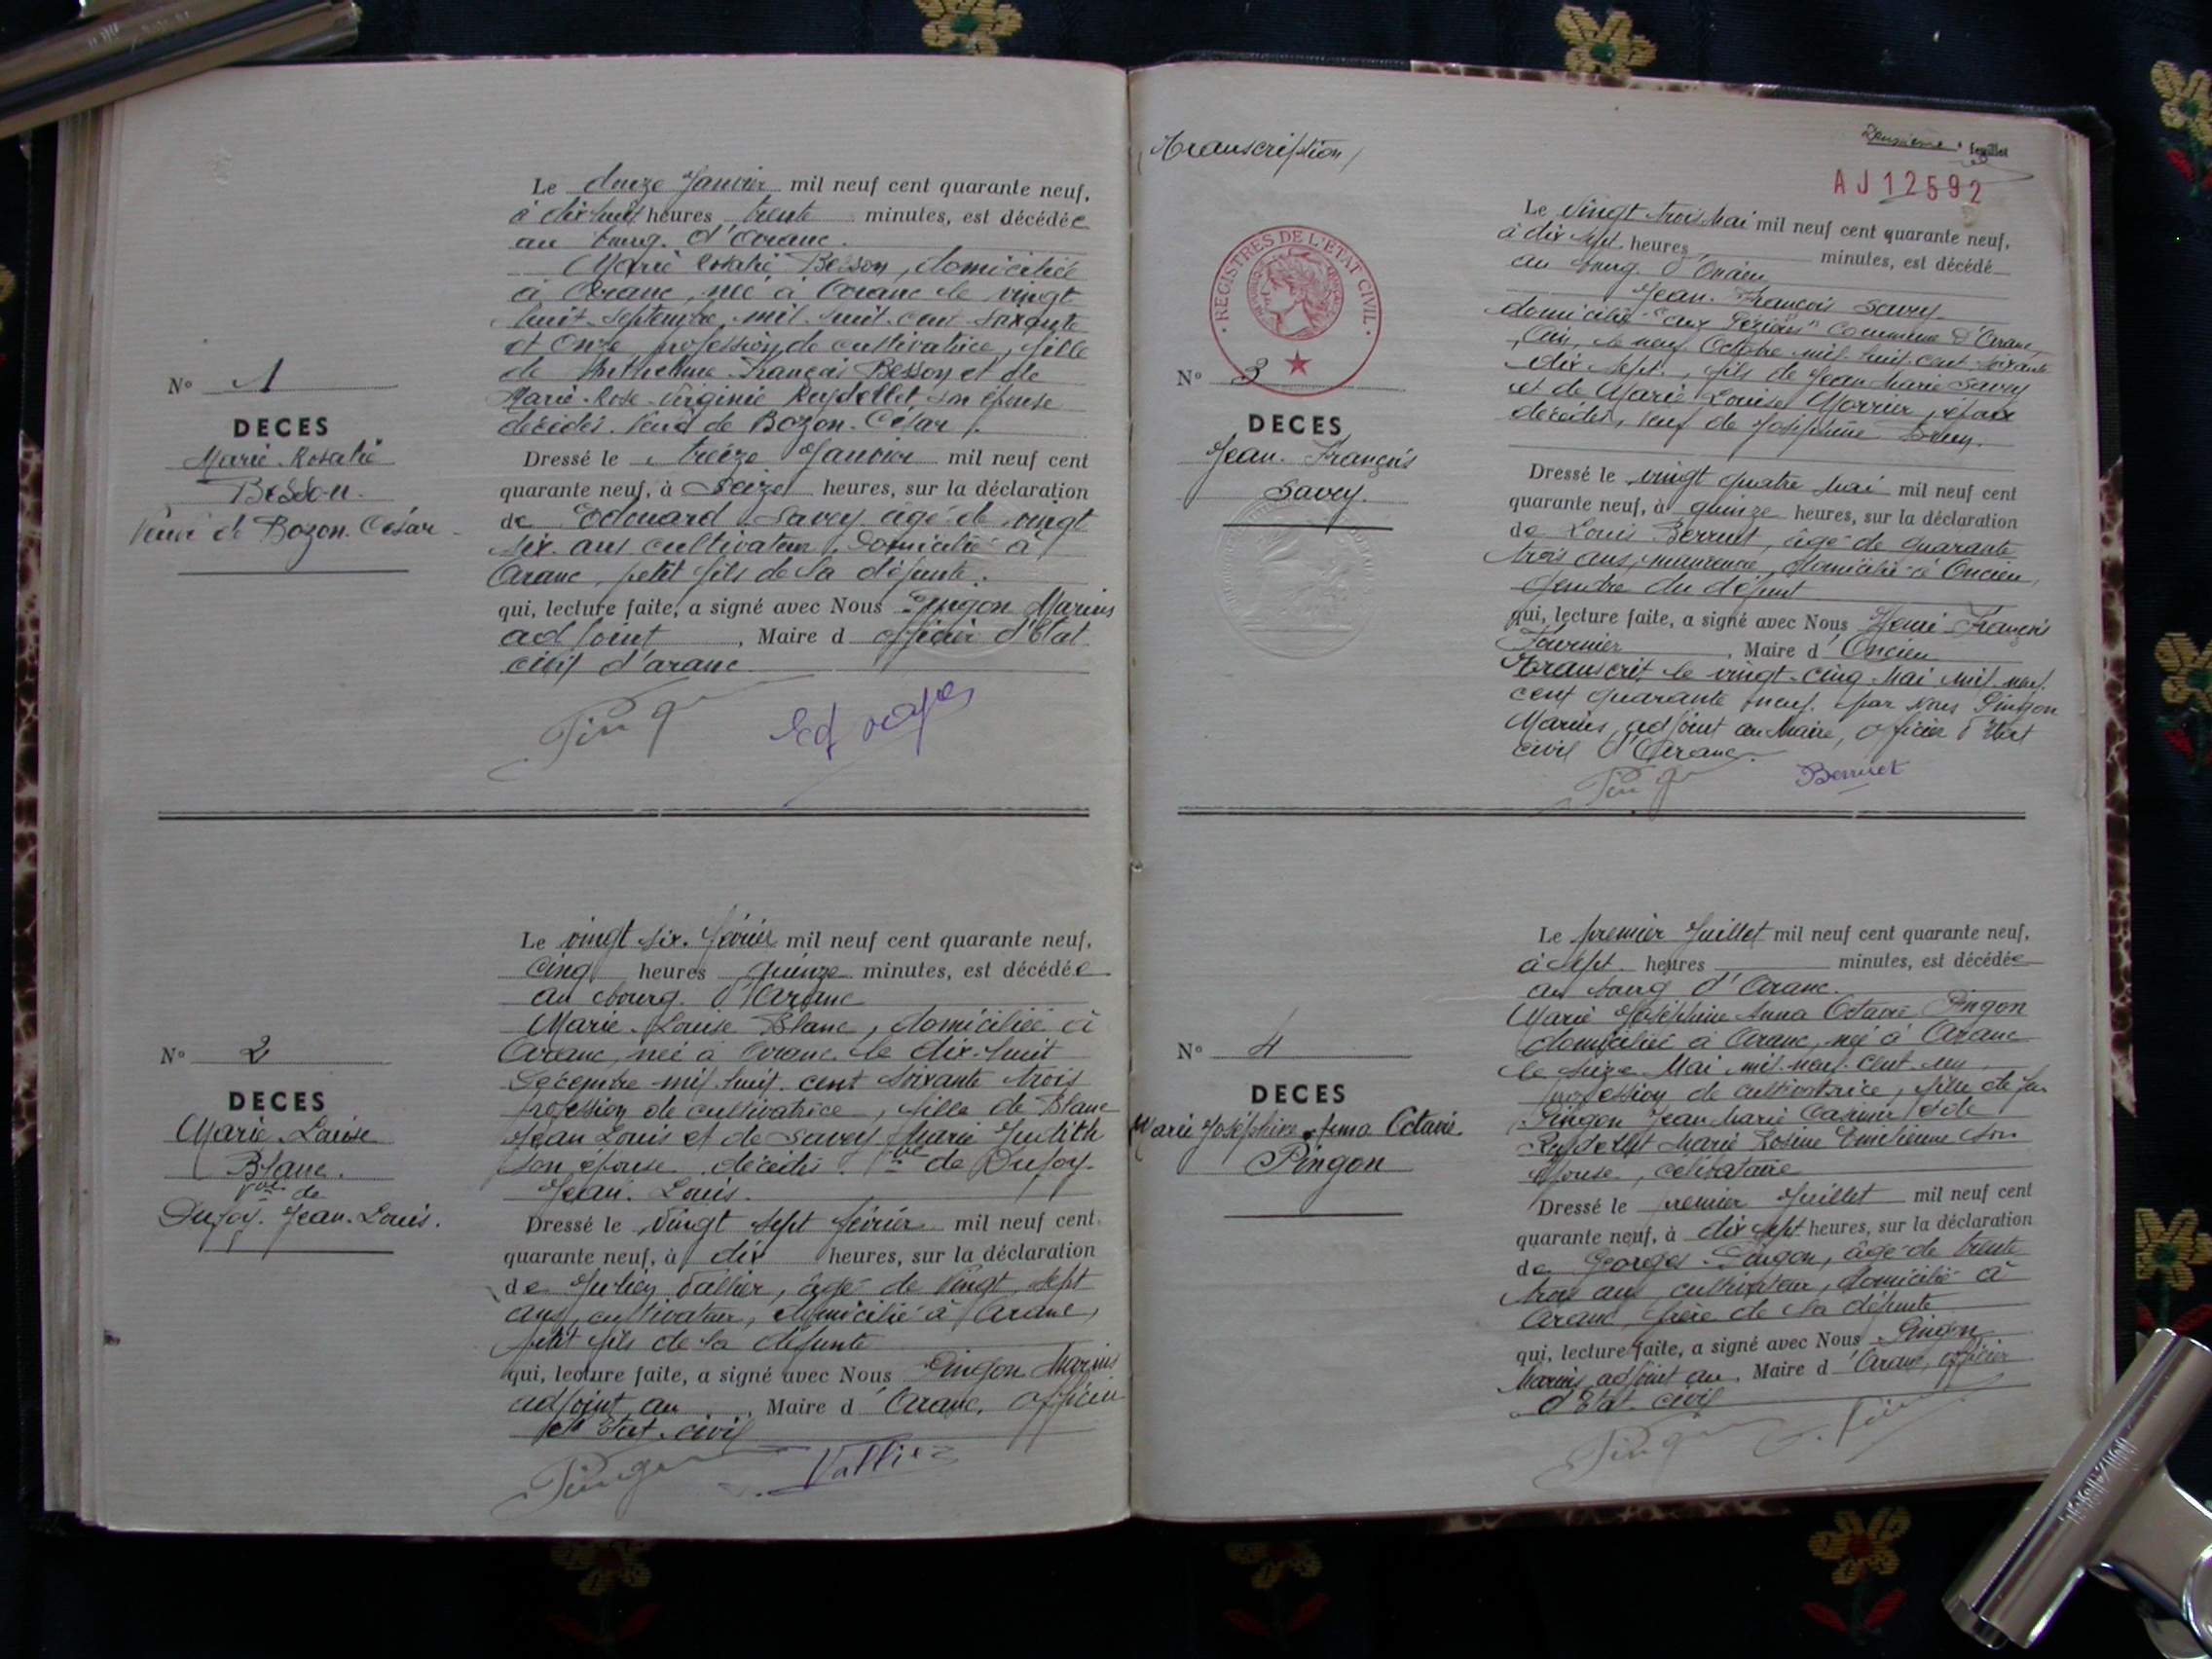 Le douze Janvier mil neuf cent quarante neuf,
à dix huit heures trente minutes, est décédée
au bourg d'Aranc.
Marie Rosalie Besson, domiciliée
à Aranc, née à Aranc le vingt
huit Septembre mil huit cent soixante
et onze profession de cultivatrice, fille
de François Besson et de
Marie-Rose-Virginie Reydellet, son épouse
décédés. Veuve de Bozon-César.
N° 1
DECES
Marie-Rosalie
Besson.
Veuve de Bozon-César
Dressé le treize Janvier mil neuf cent
quarante neuf, à Seize heures, sur la déclaration
de Edouard Savey agé de vingt
six ans cultivateur, domicilié à
Aranc, petit fils de la défunte.
qui, lecture faite, a signé avec Nous Pingon Marius
adjoint, Maire d officier d'Etat
civil d'aranc
Le vingt six Février mil neuf cent quarante neuf,
cinq heures quinze minutes, est décédée
au bourg d'Aranc
Marie-Louise Blanc, domiciliée à
Aranc, née à Aranc le dix-huit
Décembre mil huit cent soixante trois
profession de cultivatrice, fille de Blanc
Jean Louis et de Savey Marie Judith
son épouse décédés. Vve de Dufoy
Jean-Louis.
N° 2
DECES
Marie-Louise
Blanc.
Vve de
Dufoy-Jean-Louis.
Dressé le vingt sept février mil neuf cent
quarante neuf, à dix heures, sur la déclaration
de Julien Vallier, âgé de vingt sept
ans, cultivateur, domicilié à Aranc,
petit fils de la défunte
qui, lecture faite, a signé avec Nous Pingon Marius
adjoint au, Maire d'Aranc, officier
d'Etat-civil
Pingon Vallier
(Transcription)
Deuxième feuillet
AJ12592
REGISTRES DE L'ETAT CIVIL
Le vingt trois Mai mil neuf cent quarante neuf,
à dix sept heures minutes, est décédé
au bourg d'Oncieu
Jean-François Savey
domicilié commune d'Aranc,
Ain, le neuf Octobre mil huit cent soixante
dix sept, fils de Jean Marie Savey
et de Marie Louise, époux
décédés, veuf de Joséphine
N° 3
DECES
Jean-François
Savey.
Dressé le vingt quatre Mai mil neuf cent
quarante neuf, à quinze heures, sur la déclaration
de Louis Berruet, âgé de quarante
trois ans, domicilié à Oncieu,
gendre du défunt
qui, lecture faite, a signé avec Nous Henri François
Fournier, Maire d'Oncieu
Transcrit le vingt-cinq Mai mil neuf
cent quarante neuf par Nous Pingon
Marius, adjoint au Maire, officier d'Etat
civil d'Aranc.
Berruet
Le premier Juillet mil neuf cent quarante neuf,
à sept heures minutes, est décédée
au bourg d'Aranc.
Marie Joséphine Anna Octavie Pingon
domiciliée à Aranc, née à Aranc
le seize Mai mil neuf cent un
profession de cultivatrice, fille de feu
Pingon Jean Marie Casimir et de
Reydellet Marie Rosine Emilienne son
épouse, célibataire
N° 4
DECES
Marie Joséphine Anna Octavie
Pingon
Dressé le premier Juillet mil neuf cent
quarante neuf, à dix sept heures, sur la déclaration
de Georges Pingon, âgé de trente
trois ans, cultivateur, domicilié à
Aranc, frère de la défunte
qui, lecture faite, a signé avec Nous Pingon
Marius adjoint au, Maire d'Aranc, officier
d'Etat-civil